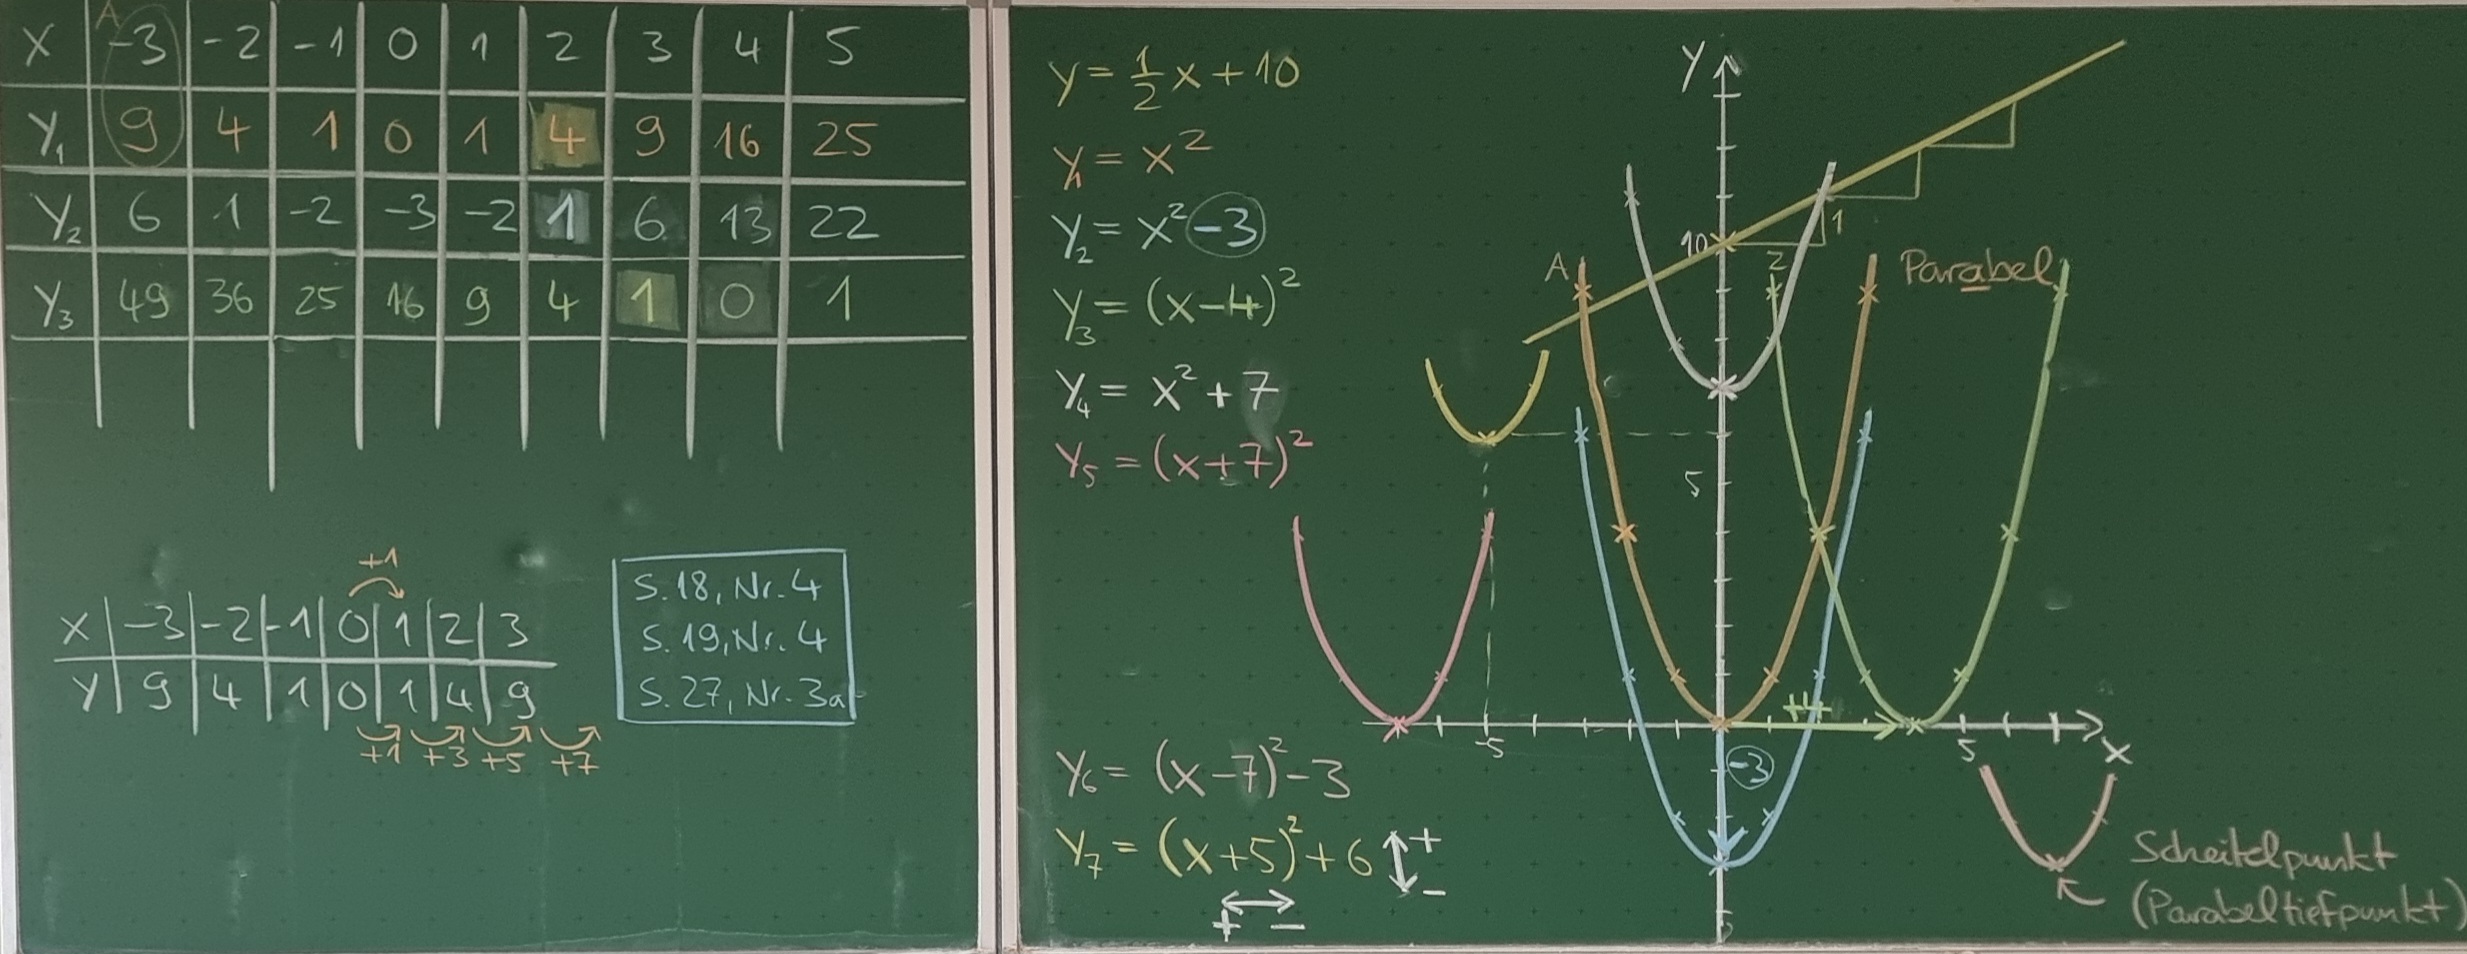 A
X -3 -2 -1 0 1 2 3 4 5
Y₁ 9 4 1 0 1 4 9 16 25
Y₂ 6 1 -2 -3 -2 1 6 13 22
Y₃ 49 36 25 16 9 4 1 0 1
+1
X -3 -2 -1 0 1 2 3
Y 9 4 1 0 1 4 9
+1 +3 +5 +7
S. 18, Nr. 4
S. 19, Nr. 4
S. 27, Nr. 3a
y = 1/2 x + 10
y₁ = x²
Y₂ = x² -3
Y₃ = (x-4)²
Y₄ = x² + 7
Y₅ = (x+7)²
Y₆ = (x-7)² - 3
Y₇ = (x+5)² + 6
+
-
+ -
Y
10
1
2
A
Parabel
5
+4
-5
5
X
-3
Scheitelpunkt
(Parabeltiefpunkt)